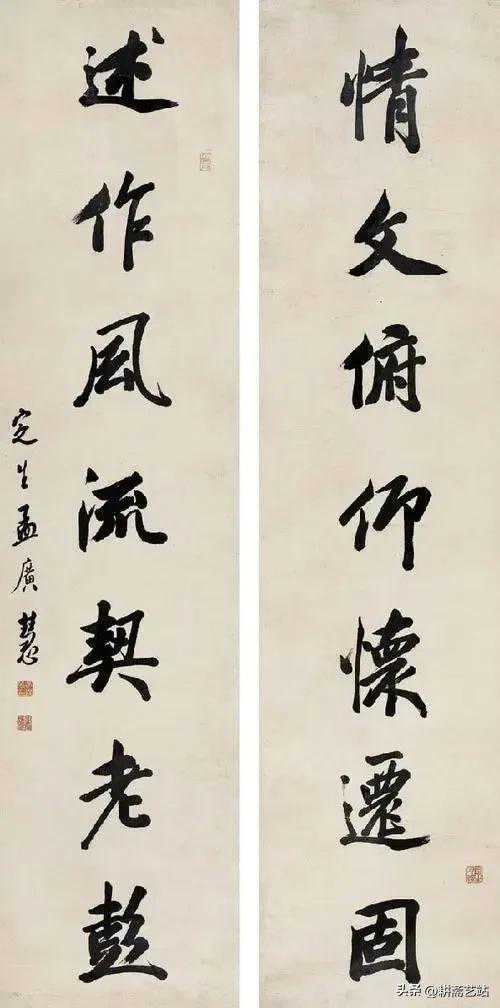 情文俯仰懷遷固
述作風流契老彭
定生孟廣慧
头条@耕斋艺站